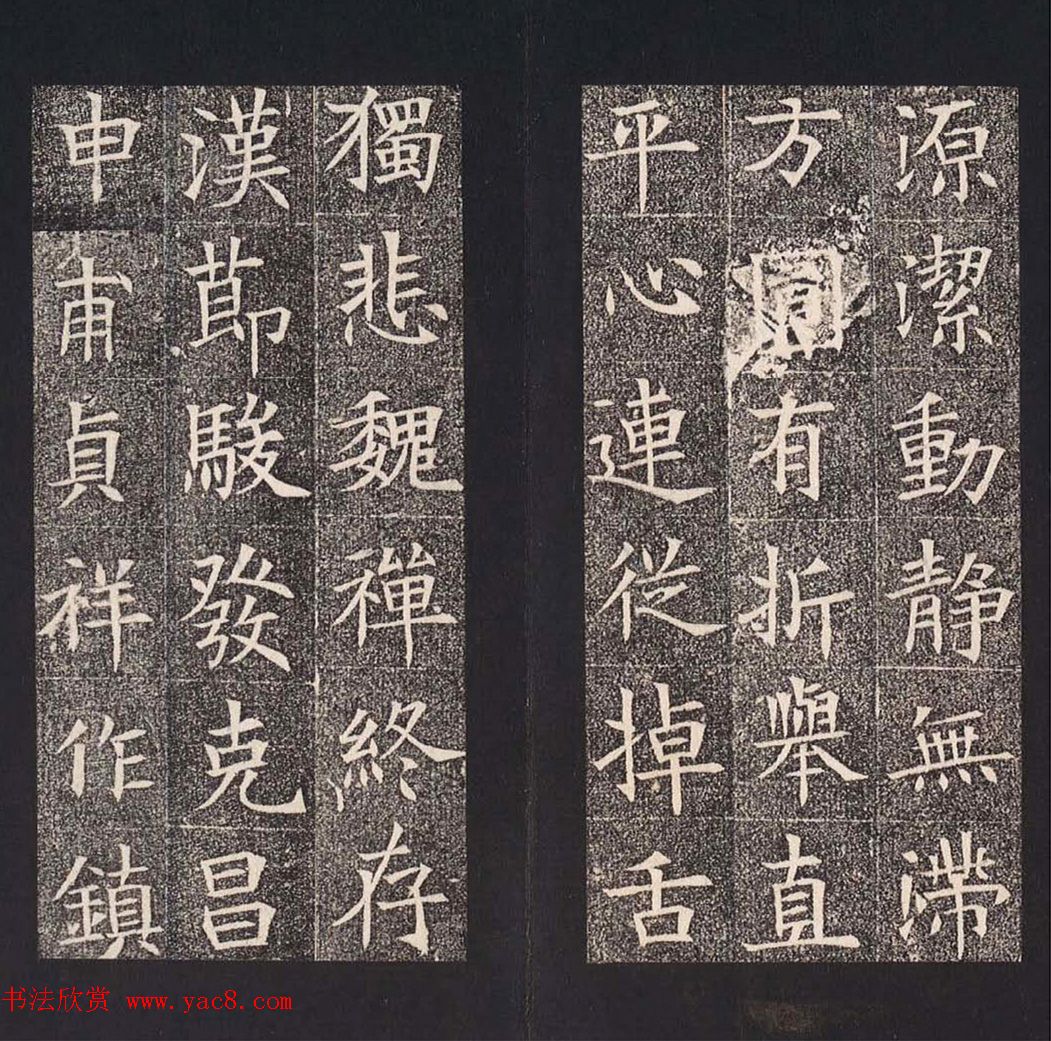 源潔動静無滞
方圓有折舉直
平心連從掉舌
獨悲魏禪終存
漢莭駿發克昌
申甫貞祥作鎮
书法欣赏 www.yac8.com